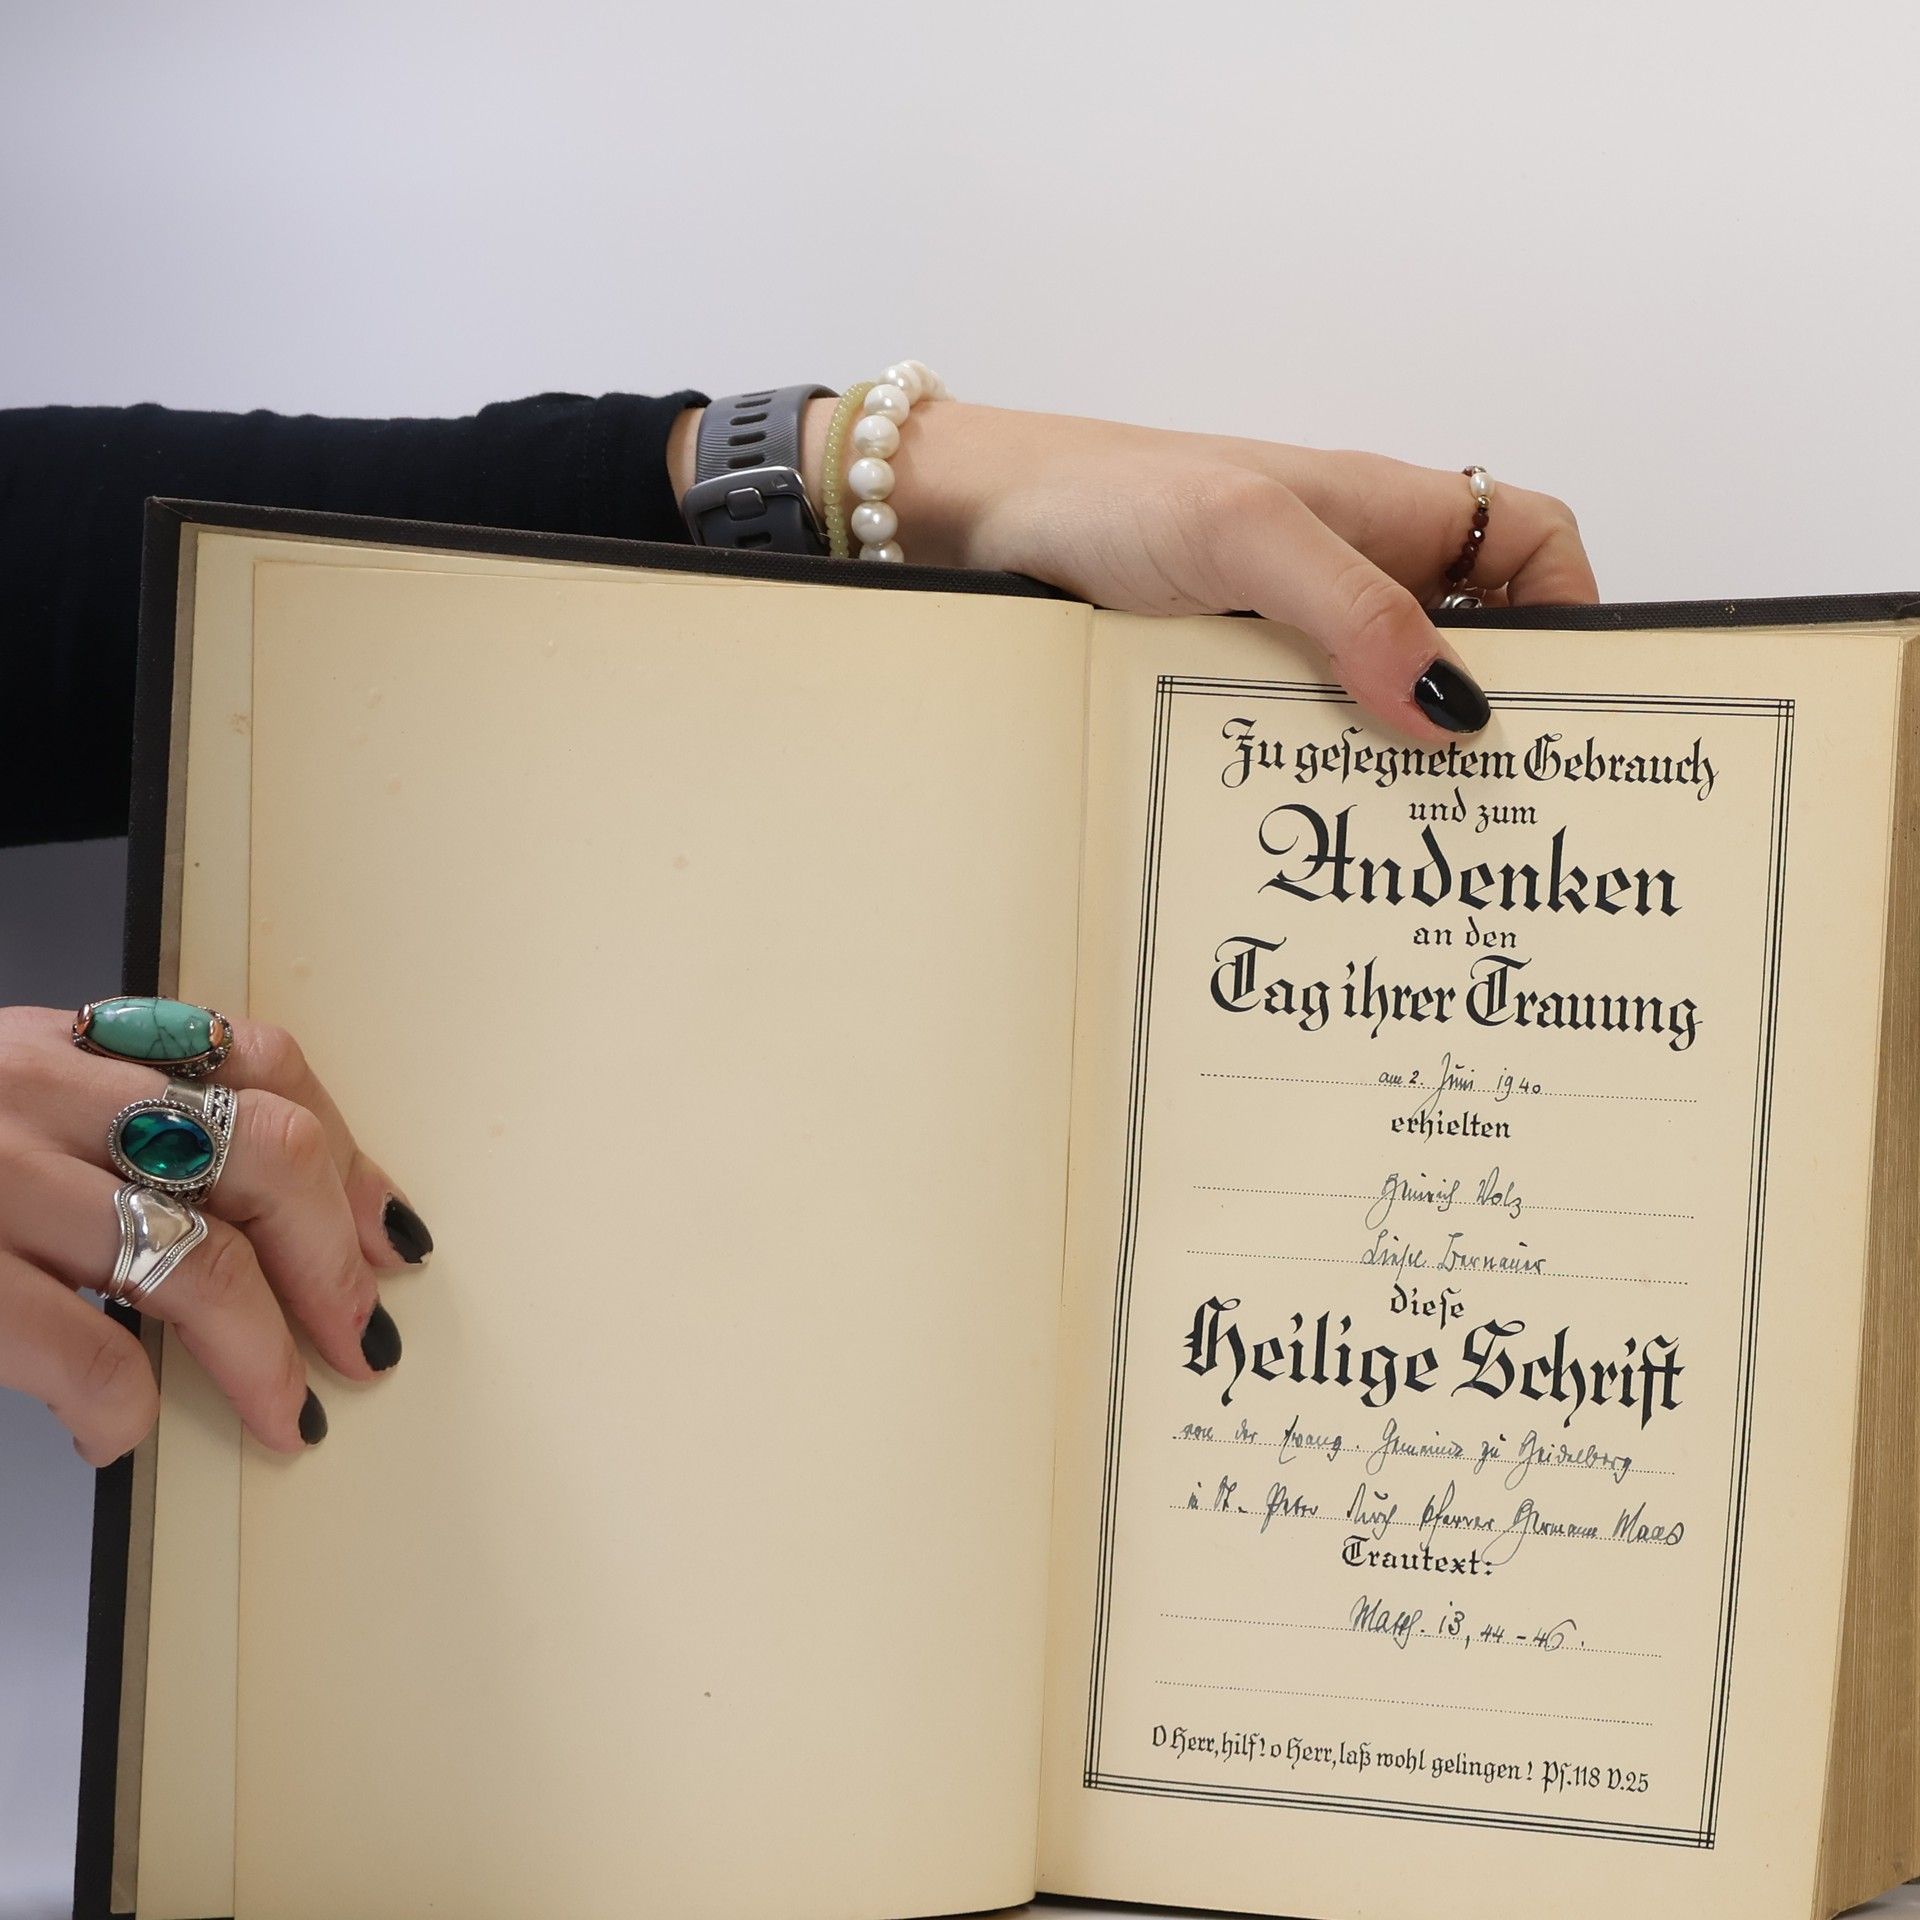 Zu gesegnetem Gebrauch
und zum
Andenken
an den
Tag ihrer Trauung
am 2. Juni 1940
erhielten
Heinrich Volz
Liesel Bernauer
diese
Heilige Schrift
von der Evang. Gemeinde zu Heidelberg
in St. Peter durch Pfarrer Hermann Maas
Trautext:
Matth. 13, 44-46.
O Herr, hilf! o Herr, laß wohl gelingen! Ps. 118 V. 25